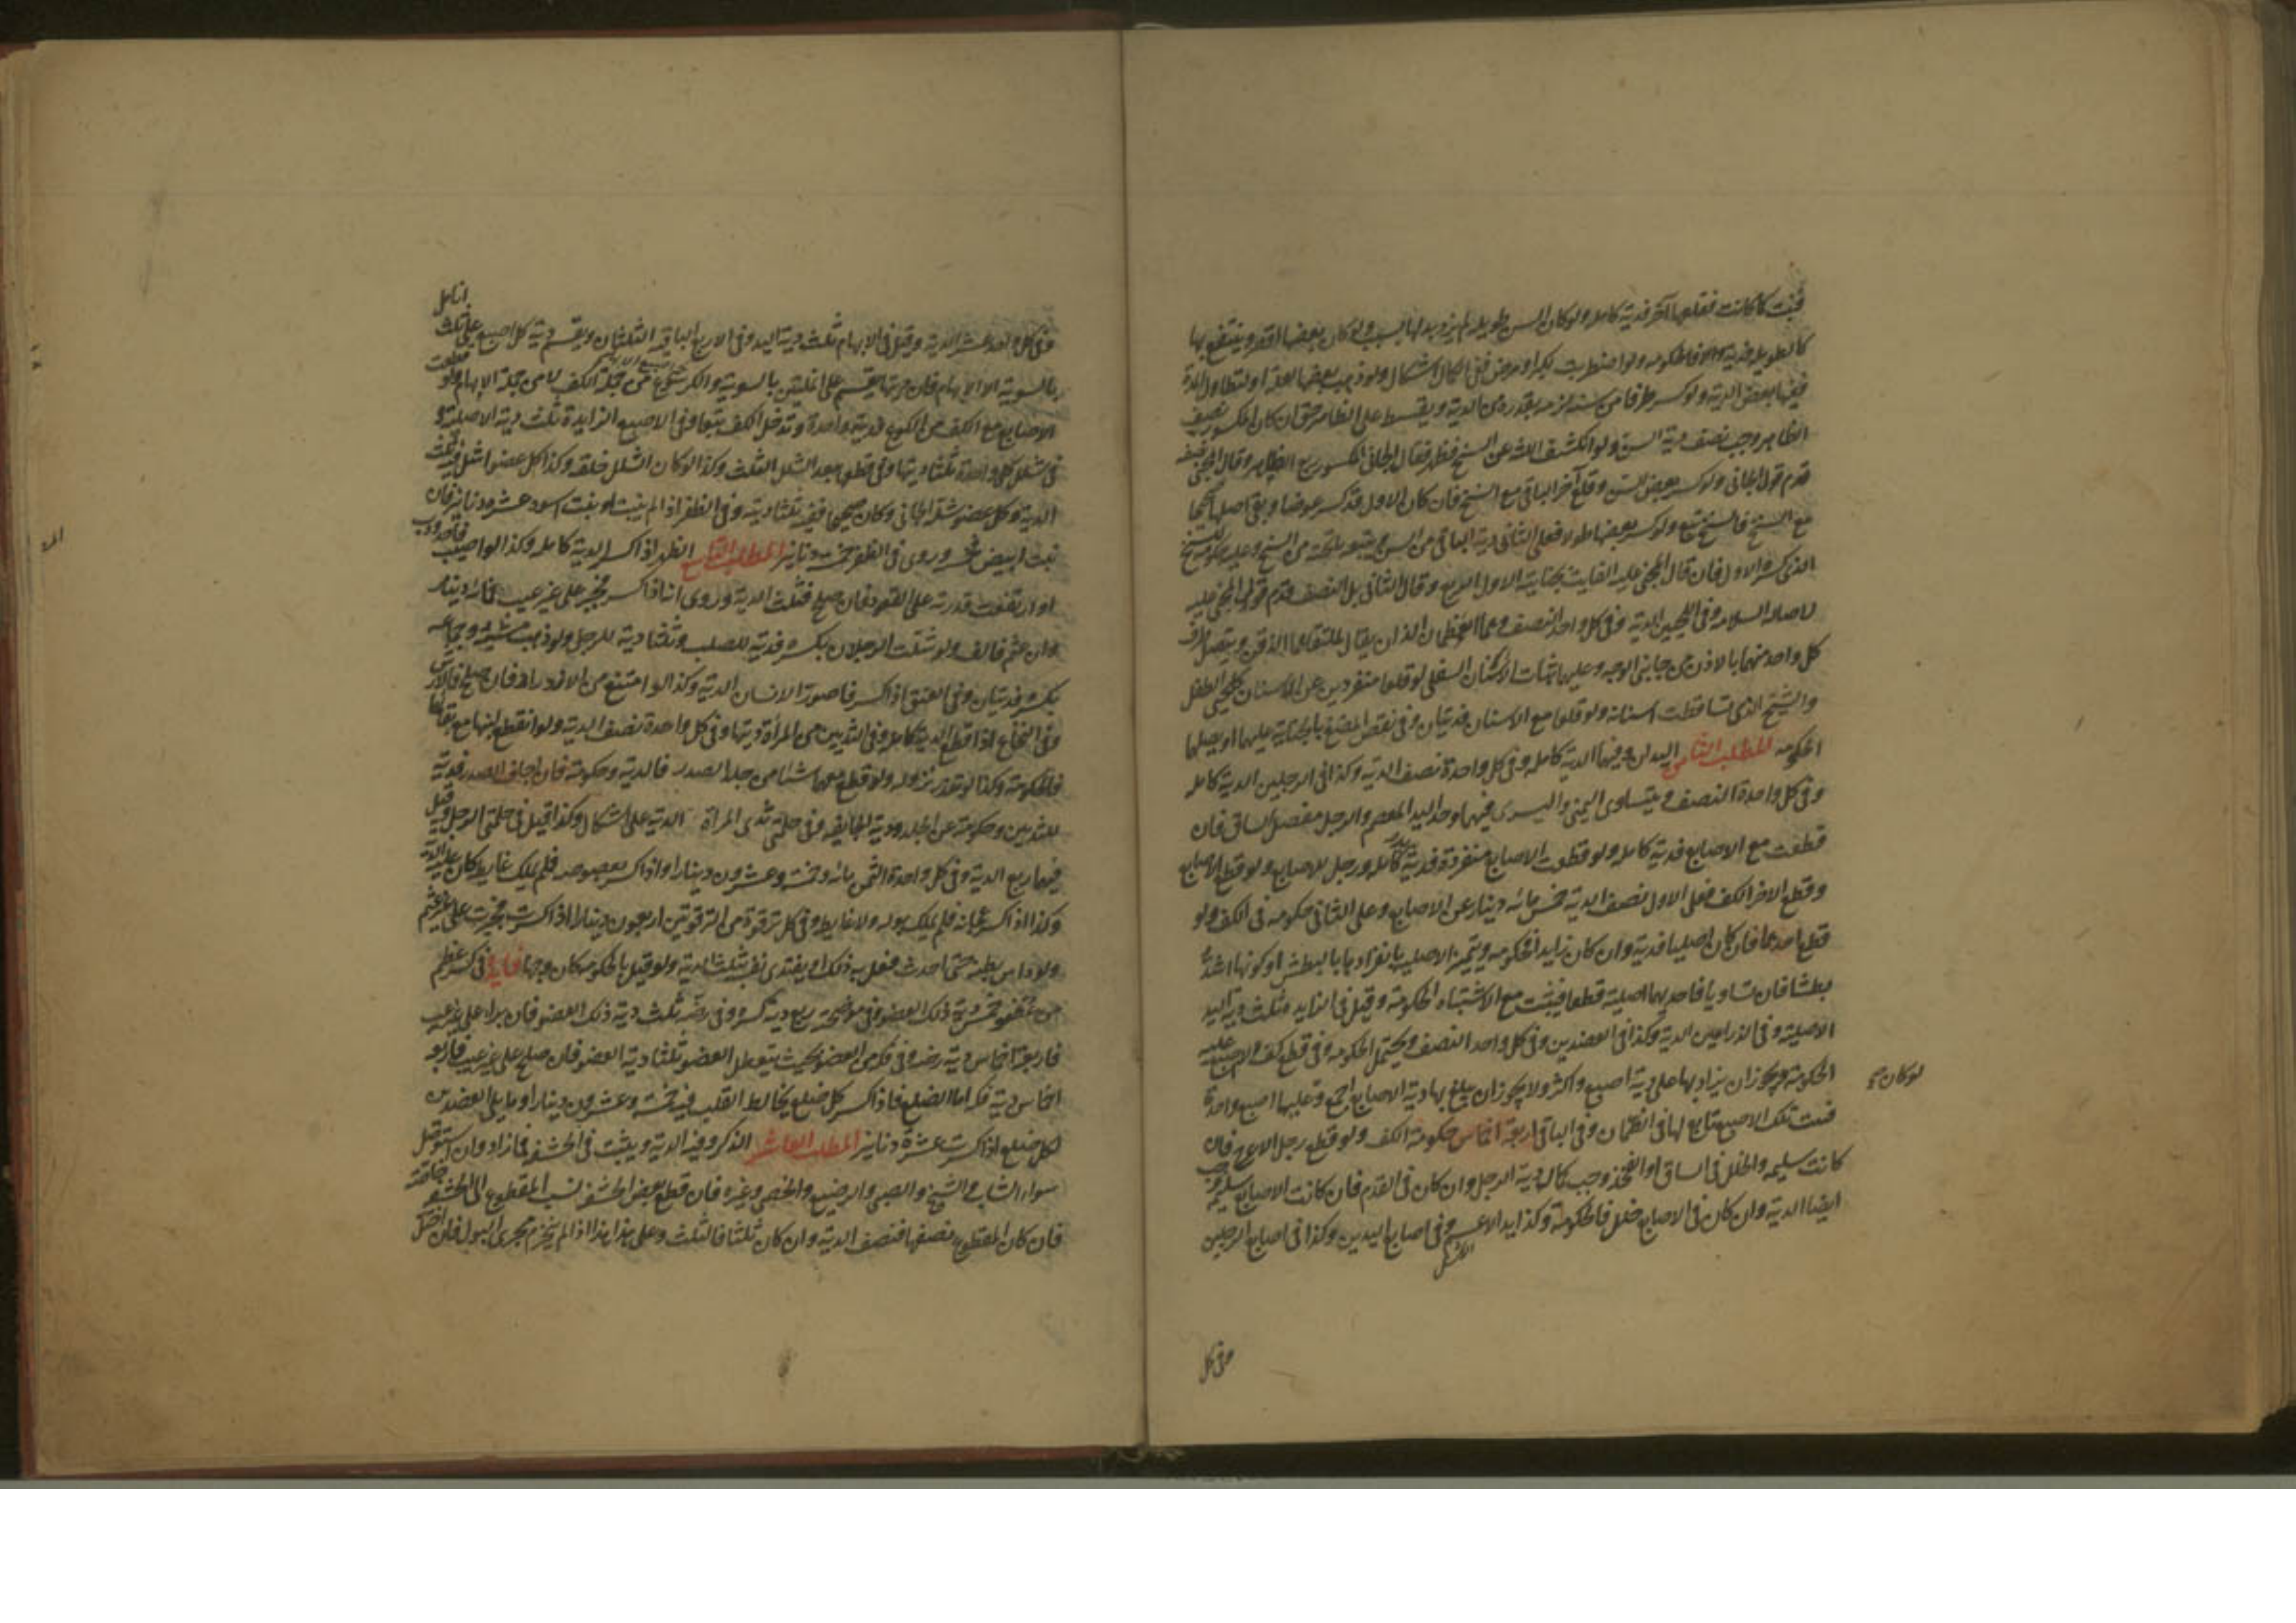 فنبتت كما كانت فقلعها آخر فدية كاملة ولو كان السن طويلة لم يزد بدلها بسبب ولو كان بعضها اقصر وينتفع بها
كالطويلة فدية والا فالحكومة ولو اضطربت لكبر او مرض ففي الكمال اشكال ولو ذهب بعضها لعلة او لتطاول المدة
ففيها بعض الدية ولو كسر طرفا من سنه لزمه بقدره من الدية ويقسط على الظاهر حتى ان كان المكسور نصف
الظاهر وجب نصف دية السن ولو انكشف اللثة عن السنخ فظهر فقال الجاني المكسور ربع الظاهر وقال المجني نصف
قدم قول الجاني ولو كسر بعض السن وقلع آخر الباقي مع السنخ فان كان الاول قد كسر عرضا وبقي اصلها صحيحا
مع السنخ فالسنخ تبع ولو كسر بعضها طولا فعلى الثاني دية الباقي من السن ويتبعه ما تحته من السنخ وعليه حكومة السنخ
الذي كسره الاول فان قال المجني عليه الفايت بجناية الاول الربع وقال الثاني بل النصف قدم قول المجني عليه
لاصالة السلامة وفي اللحيين الدية وفي كل واحد النصف وهما العظمان اللذان يقال لملتقاهما الذقن ويتصل طرف
كل واحد منهما بالاذن من جانبي الوجه وعليهما نبات الاسنان السفلى لو قلعا منفردين عن الاسنان كلحيي الطفل
والشيخ الذي تساقطت اسنانه ولو قلعا مع الاسنان فديتان وفي نقص المضغ بالجناية عليهما او يصلبهما
الحكومة المطلب الثامن اليدان وفيهما الدية كاملة وفي كل واحدة نصف الدية وكذا في الرجلين الدية كاملة
وفي كل واحدة النصف ويتساوى اليمنى واليسرى فيهما وحد اليد المعصم والرجل مفصل الساق فان
قطعت مع الاصابع فدية كاملة ولو قطعت الاصابع منفردة فدية كاملة ورجل الاصابع ولو قطع الاصابع
وقطع الاخر الكف فعلى الاول نصف الدية خمس مائه دينار عن الاصابع وعلى الثاني حكومة في الكف ولو
قطع احدهما فان كان اصليا فدية وان كان زايدا فحكومة ويتميز الاصلية بانفرادها بالبطش او كونها اشد
بطشا فان تساويا فاحديهما اصلية قطعا فيثبت مع الاشتباه الحكومة وقيل في الزايدة ثلث دية اليد
الاصلية وفي الذراعين الدية وكذا في العضدين وفي كل واحد النصف ويحتمل الحكومة وفي قطع كف لا اصبع عليه
الحكومة ويجوز ان يزاد بها على دية اصبع واكثر ولا يجوز ان يبلغ بها دية الاصابع اجمع وعليها اصبع واحدة
لو كان صح
فتلك الاصبع تتابع لها في الضمان وفي الباقي اربعة اخماس حكومة الكف ولو قطع رجل الاعرج فان
كانت سليمة والخلل في الساق او الفخذ وجب كمال دية الرجل وان كان في القدم فان كانت الاصابع سليمة وجب
ايضا الدية وان كان في الاصابع خلل فالحكومة وكذا يد الاعسم وفي اصابع اليدين وكذا في اصابع الرجلين
وفي كل
انامل
وفي كل واحد عشر الدية وقيل في الابهام ثلث دية اليد وفي الاربع الباقية الثلثان ويقسم دية كل اصبع على ثلث
بالسوية الا الابهام فان ديتها يقسم على انملتين بالسوية من جملة الكف لا من جملة الابهام ولو قطعت
الاصابع مع الكف من الكوع فدية واحدة وتدخل الكف تبعا وفي الاصبع الزايدة ثلث دية الاصلية و
في شلل كل واحدة ثلثا ديتها وفي قطعها بعد الشلل الثلث وكذا لو كان الشلل خلقة وكذا كل عضو اشل فيه ثلث
الدية وكل عضو شله الجاني وكان صحيحا ففيه ثلثا ديته وفي الظفر اذا لم ينبت او نبت اسود عشرة دنانير فان
نبت ابيض خمسة وروى في الظفر خمسة دنانير المطلب التاسع الظهر اذا كسر الدية كاملة وكذا لو اصيب فاحدودب
او ارتفعت قدرته على القعود فان صلح فثلث الدية وروى انه اذا كسر فجبر على غير عيب فمائة دينار
وان عثم فالف ولو شلت الرجلان بكسره فدية للصلب وثلثا دية للرجل ولو ذهب مشيه وجماعه
بكسره فديتان وفي العنق اذا كسر فاصور الانسان الدية وكذا لو امتنع من الازدراد فان صلح فالارش
وفي النخاع اذا قطع الدية كاملة وفي الثديين من المرأة ديتها وفي كل واحدة نصف الدية ولو انقطع لبنها مع بقائهما
فالحكومة وكذا لو تعذر نزوله ولو قطع معهما شئا من جلد الصدر فالدية وحكومة فان اجاف الصدر فدية
للثديين وحكومة عن الجلد ودية الجايفة وفي حلمتي ثدي المرأة الدية على اشكال وكذا قيل في حلمتي الرجل وقيل
فيهما ربع الدية وفي كل واحدة الثمن مائة وخمسة وعشرون دينارا واذا كسر بعصوصه فلم يملك غايطه كان عليه الدية
وكذا اذا كسر عجانه فلم يملك بوله ولا غايطه وفي كل ترقوة من الترقوتين اربعون دينارا اذا كسرت فجبرت على غير عثم
ولو داس بطنه حتى احدث فعل به ذلك او يفتدي نفسه بثلث الدية ولو قيل بالحكومة كان وجها فايدة في كسر عظم
من عضو خمس دية ذلك العضو وفي موضحته ربع دية كسره وفي رضه ثلث دية ذلك العضو فان برأ على غير عيب
فاربعة اخماس دية رضه وفي فكه من العضو بحيث يتعطل العضو ثلثا دية العضو فان صلح على غير عيب فاربعة
اخماس دية فكه اما الضلع فاذا كسر كل ضلع يخالط القلب فيه خمسة وعشرون دينارا ومما يلي العضدين
لكل ضلع اذا كسرت عشرة دنانير المطلب العاشر الذكر وفيه الدية ويثبت في الحشفة فما زاد وان استوصل
سواء الشاب والشيخ والصبي والرضيع والخصي وغيره فان قطع بعض الحشفة نسب المقطوع الى الحشفة خاصة
فان كان المقطوع نصفها فنصف الدية وان كان ثلثا فالثلث وعلى هذا هذا اذا لم ينخرم مجرى البول فان اختل